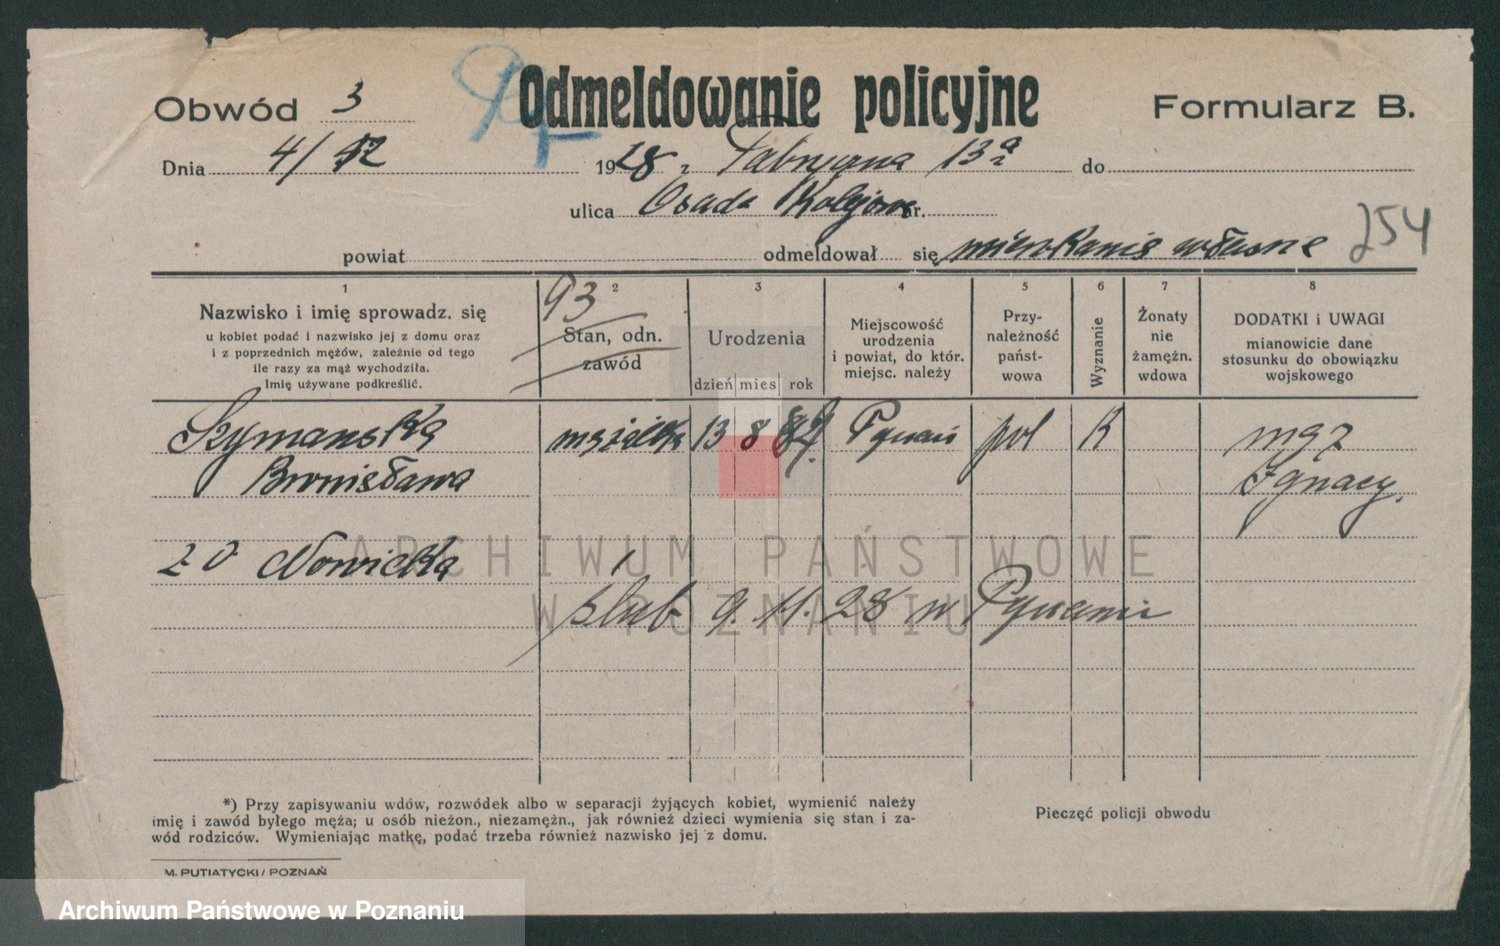 Odmeldowanie policyjne
Obwód 3
Formularz B.
Dnia 4/12 1928 z Fabryczna 13a do
ulica Osada Kolejowa nr.
powiat odmeldował się mieszkanie własne
254
93
1
Nazwisko i imię sprowadz. się
u kobiet podać i nazwisko jej z domu oraz
i z poprzednich mężów, zależnie od tego
ile razy za mąż wychodziła.
Imię używane podkreślić.
2
Stan, odn.
zawód
3
Urodzenia
dzień mies rok
4
Miejscowość
urodzenia
i powiat, do któr.
miejsc. należy
5
Przy-
należność
państ-
wowa
6
Wyznanie
7
Żonaty
nie
żamężn.
wdowa
8
DODATKI i UWAGI
mianowicie dane
stosunku do obowiązku
wojskowego
Szymańska 13 8 Poznań pol K mąż
Bronisława Ignacy.
z d Nowicka
ślub 9. 11. 28 w Poznaniu
ARCHIWUM PAŃSTWOWE
W POZNANIU
*) Przy zapisywaniu wdów, rozwódek albo w separacji żyjących kobiet, wymienić należy
imię i zawód byłego męża; u osób nieżon., niezamężn., jak również dzieci wymienia się stan i za-
wód rodziców. Wymieniając matkę, podać trzeba również nazwisko jej z domu.
Pieczęć policji obwodu
M. PUTIATYCKI / POZNAŃ
Archiwum Państwowe w Poznaniu